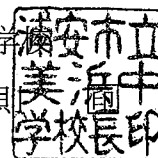 学
浦安市立
美浜中
学校長印